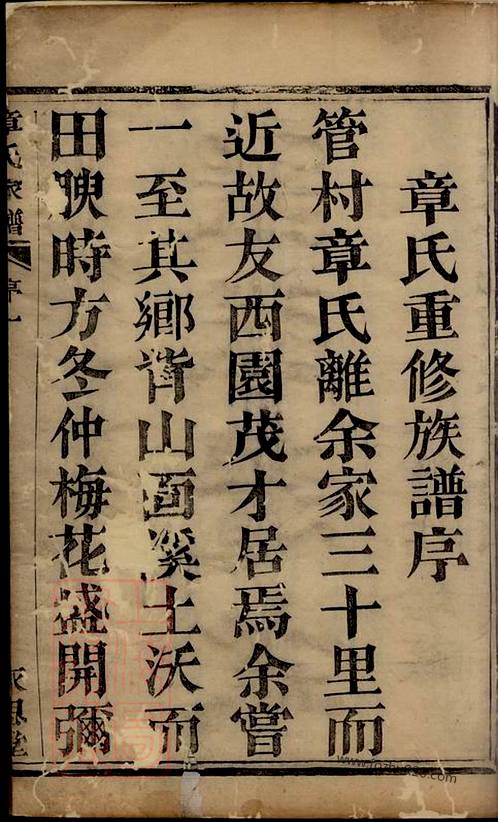 章氏重修族譜序
管村章氏離余家三十里而
近故友西園茂才居焉余嘗
一至其鄉背山面溪土沃而
田腴時方冬仲梅花盛開彌
章氏家譜
序一
www.jiazhubao.com